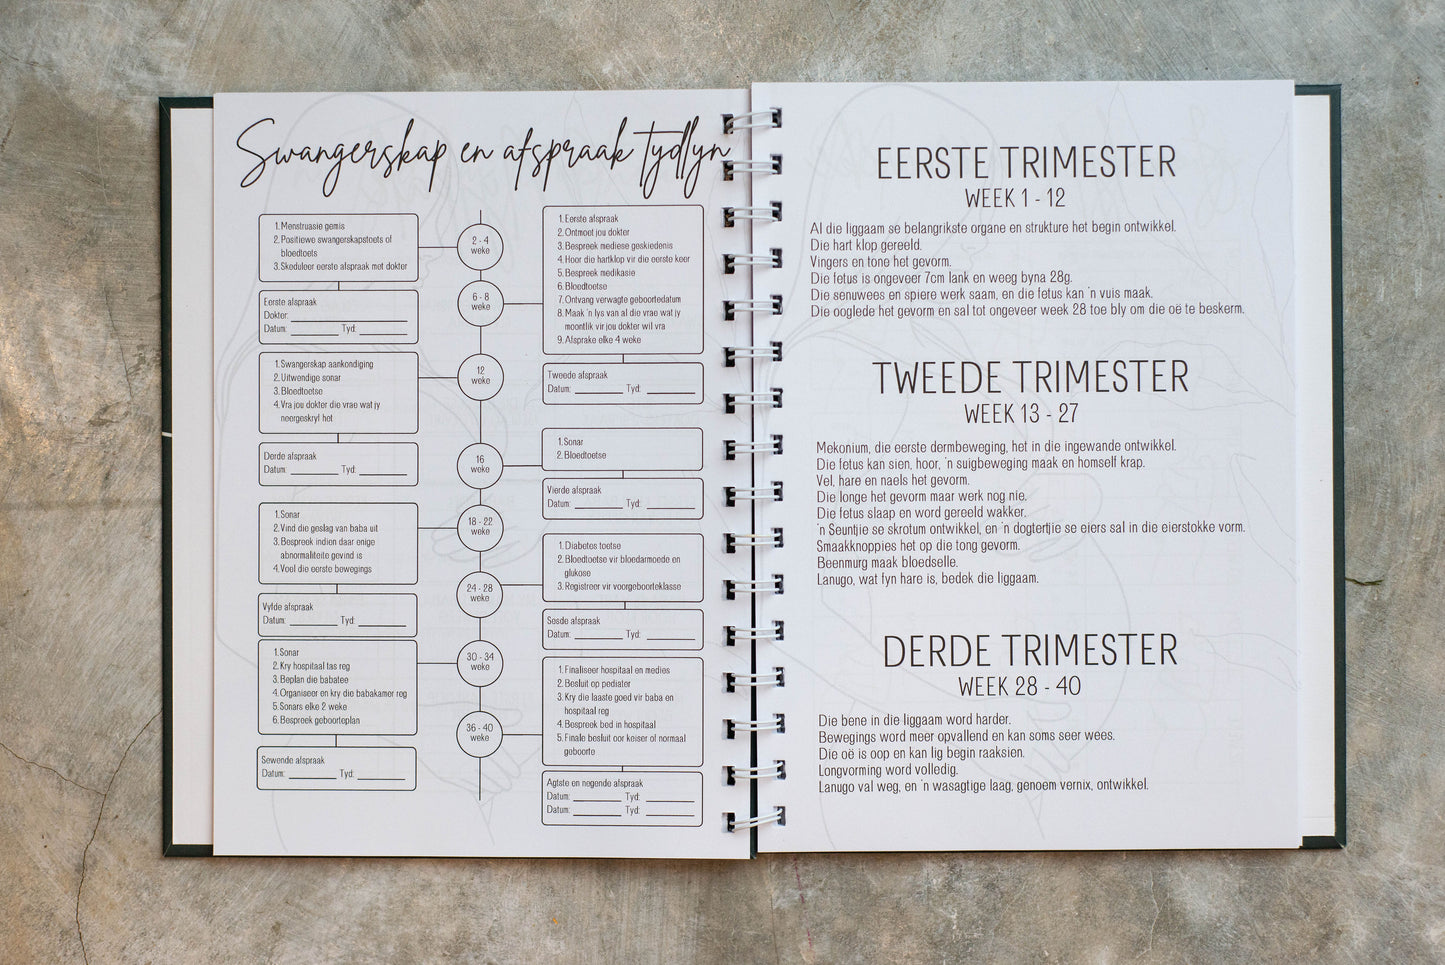 Swangerskap en afspraak tydlyn
1. Menstruasie gemis
2. Positiewe swangerskapstoets of
bloedtoets
3. Skeduleer eerste afspraak met dokter
2 - 4
weke
Eerste afspraak
Dokter:
Datum: Tyd:
6 - 8
weke
1. Eerste afspraak
2. Ontmoet jou dokter
3. Bespreek mediese geskiedenis
4. Hoor die hartklop vir die eerste keer
5. Bespreek medikasie
6. Bloedtoetse
7. Ontvang verwagte geboortedatum
8. Maak 'n lys van al die vrae wat jy
moontlik vir jou dokter wil vra
9. Afsprake elke 4 weke
Tweede afspraak
Datum: Tyd:
1. Swangerskap aankondiging
2. Uitwendige sonar
3. Bloedtoetse
4. Vra jou dokter die vrae wat jy
neergeskryf het
12
weke
Derde afspraak
Datum: Tyd:
16
weke
1. Sonar
2. Bloedtoetse
Vierde afspraak
Datum: Tyd:
1. Sonar
2. Vind die geslag van baba uit
3. Bespreek indien daar enige
abnormaliteite gevind is
4. Voel die eerste bewegings
18 - 22
weke
Vyfde afspraak
Datum: Tyd:
24 - 28
weke
1. Diabetes toetse
2. Bloedtoetse vir bloedarmoede en
glukose
3. Registreer vir voorgeboorteklasse
Sesde afspraak
Datum: Tyd:
1. Sonar
2. Kry hospitaal tas reg
3. Beplan die babatee
4. Organiseer en kry die babakamer reg
5. Sonars elke 2 weke
6. Bespreek geboorteplan
30 - 34
weke
Sewende afspraak
Datum: Tyd:
36 - 40
weke
1. Finaliseer hospitaal en medies
2. Besluit op pediater
3. Kry die laaste goed vir baba en
hospitaal reg
4. Bespreek bed in hospitaal
5. Finale besluit oor keiser of normaal
geboorte
Agtste en negende afspraak
Datum: Tyd:
Datum: Tyd:
EERSTE TRIMESTER
WEEK 1 - 12
Al die liggaam se belangrikste organe en strukture het begin ontwikkel.
Die hart klop gereeld.
Vingers en tone het gevorm.
Die fetus is ongeveer 7cm lank en weeg byna 28g.
Die senuwees en spiere werk saam, en die fetus kan 'n vuis maak.
Die ooglede het gevorm en sal tot ongeveer week 28 toe bly om die oë te beskerm.
TWEEDE TRIMESTER
WEEK 13 - 27
Mekonium, die eerste dermbeweging, het in die ingewande ontwikkel.
Die fetus kan sien, hoor, 'n suigbeweging maak en homself krap.
Vel, hare en naels het gevorm.
Die longe het gevorm maar werk nog nie.
Die fetus slaap en word gereeld wakker.
'n Seuntjie se skrotum ontwikkel, en 'n dogtertjie se eiers sal in die eierstokke vorm.
Smaakknoppies het op die tong gevorm.
Beenmurg maak bloedselle.
Lanugo, wat fyn hare is, bedek die liggaam.
DERDE TRIMESTER
WEEK 28 - 40
Die bene in die liggaam word harder.
Bewegings word meer opvallend en kan soms seer wees.
Die oë is oop en kan lig begin raaksien.
Longvorming word volledig.
Lanugo val weg, en 'n wasagtige laag, genoem vernix, ontwikkel.